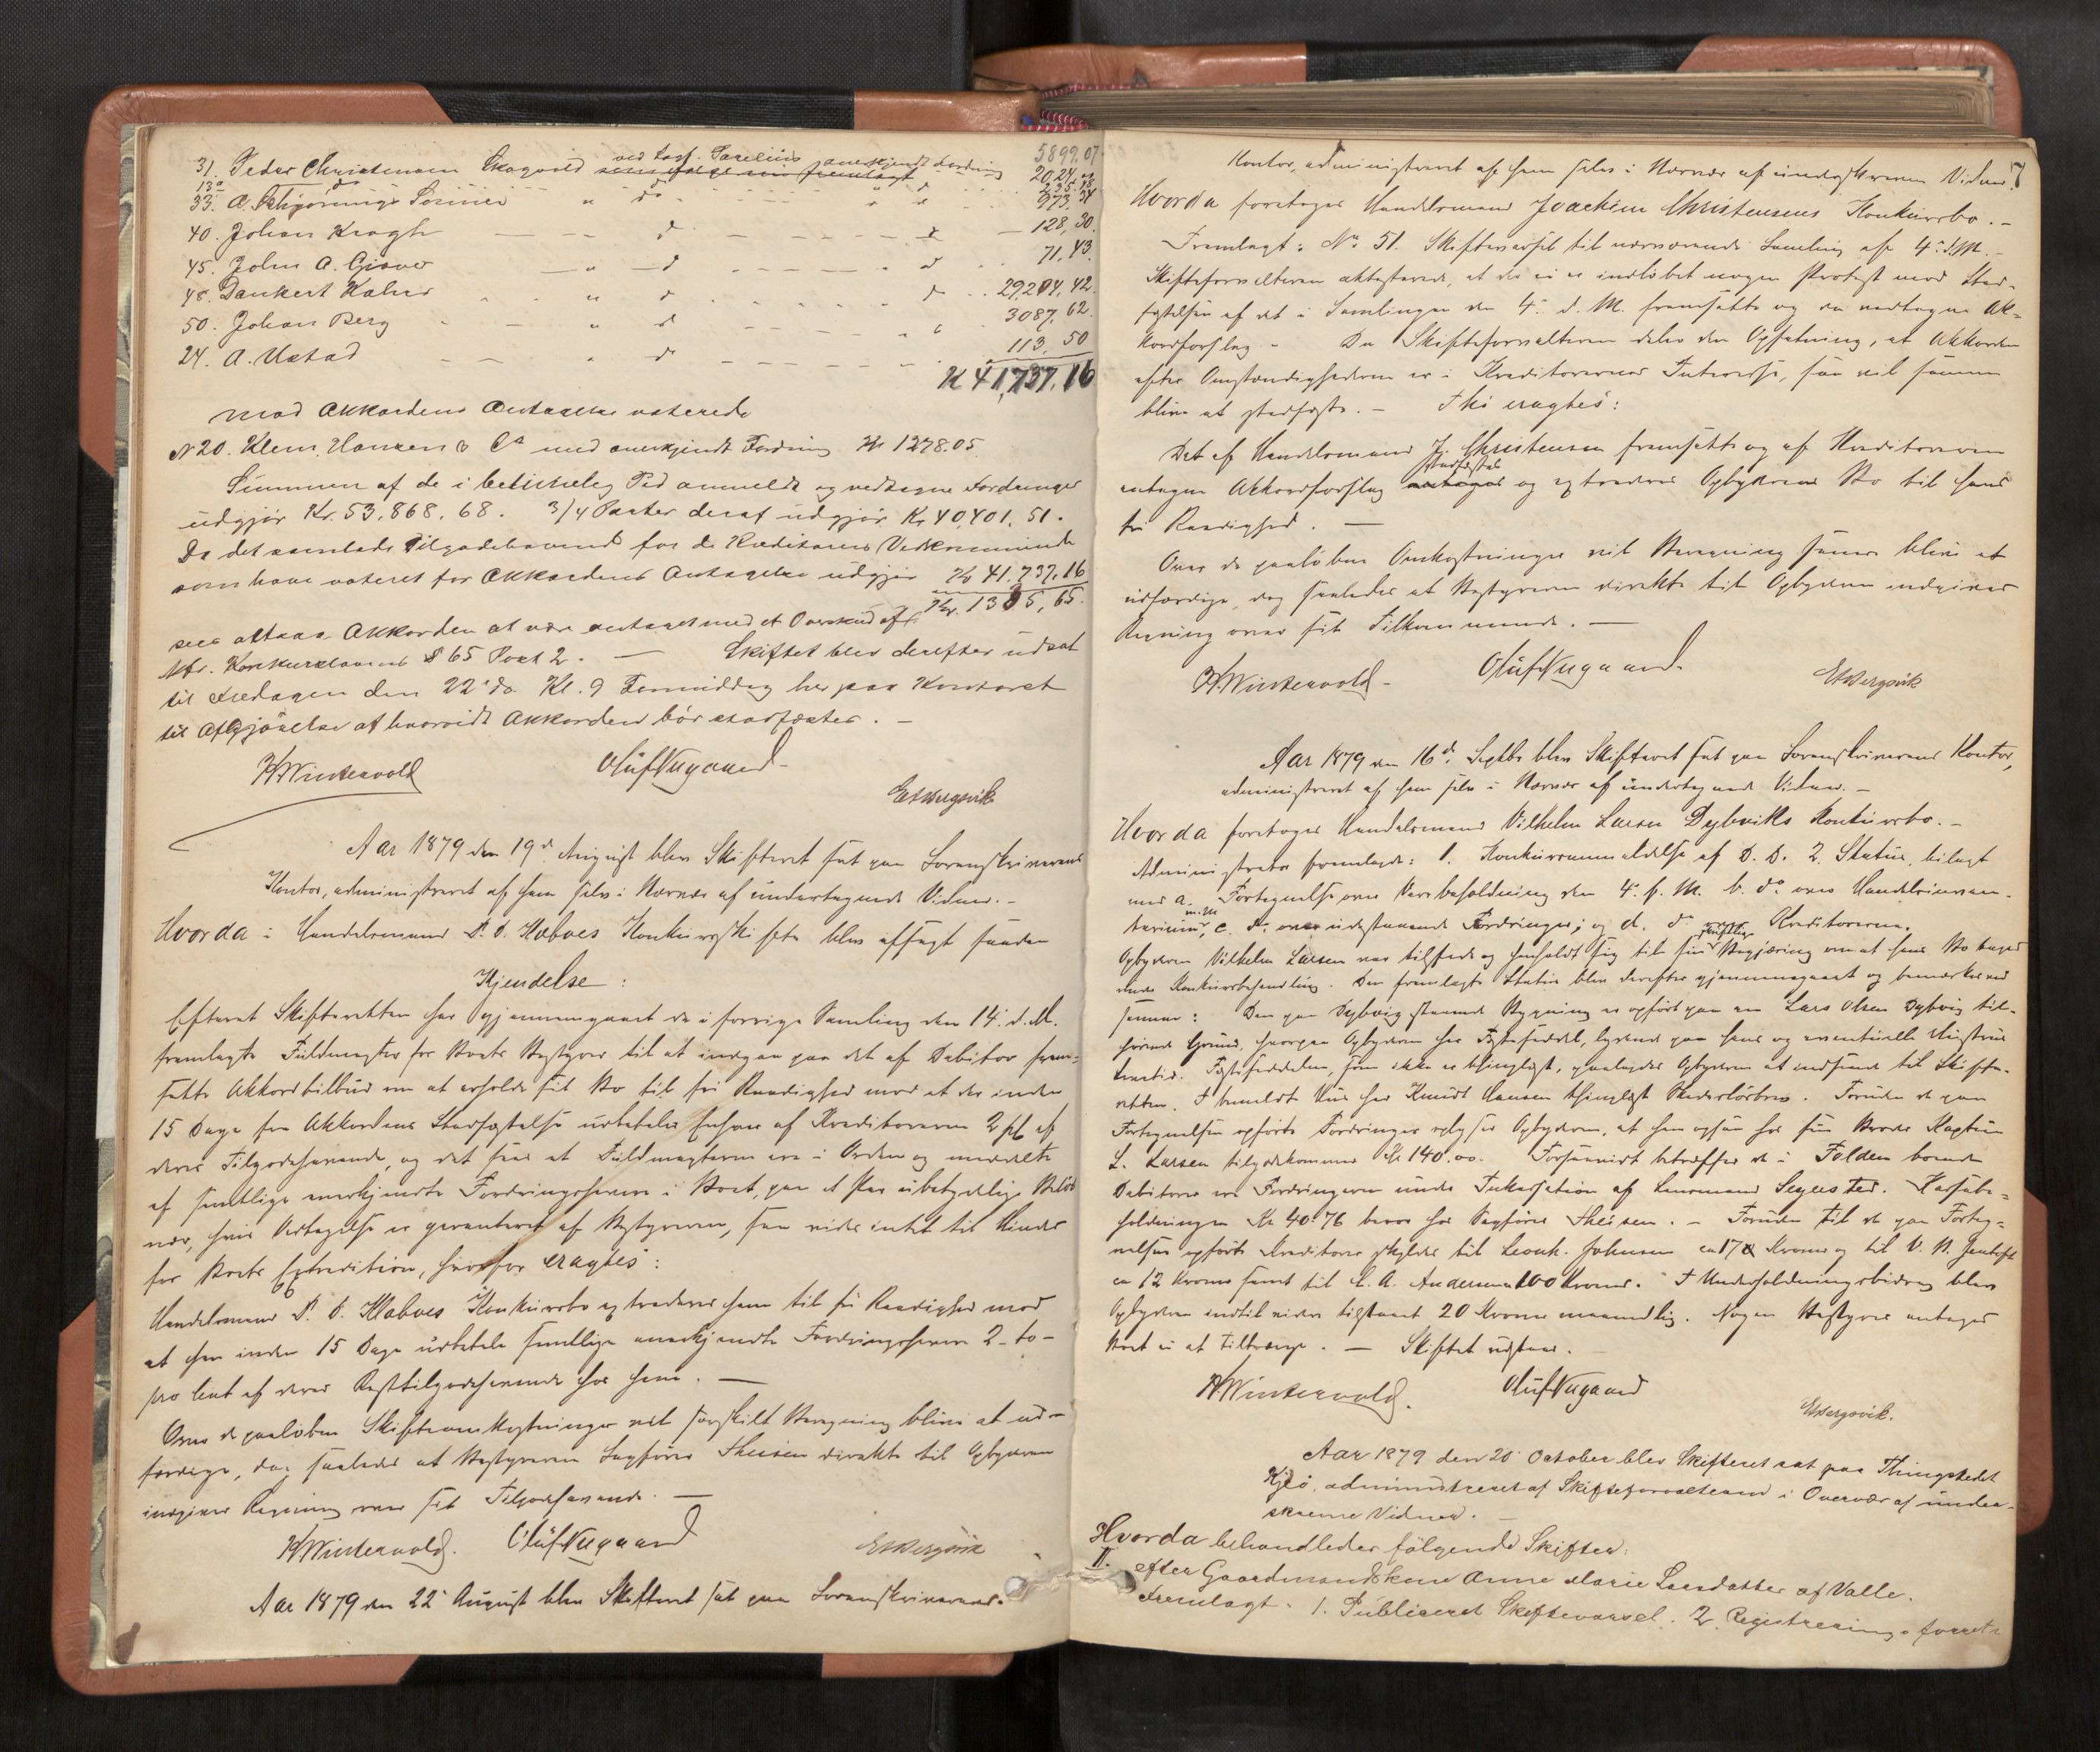 5899.07
31. Peder Christensen Skogvold ved Sagf. anerkjendt Fordring 2024.
13 do 235.18
33. A. Schjørnings Sønner " do " d 973.34
40. Johan Kragh d d 128,30.
45. John A. Gjøvær " d d 71,43.
48. Dankert Holm " d d 29,204,42.
50. Johan Berg " d " 3087,62.
24. A. Ustad " d 113,50
K 41,737,16
mod Akkordens Antagelse voterede
N 20. Klem, Hansen & Co med anerkjendt Fordring Kr 1278.05.
Summen af de i betimelig Tid anmeldte og vedtagne Fordringer
udgjør Kr. 53,868,68. 3/4 Parter deraf udgjør Kr 40,401,51.
Da det samlede Tilgodehavende for de Kreditorers Vedkommende
som have voteret for Akkordens Antagelse udgjør Kr 41,737,16
sees altsaa Akkorden at være antaget med et Overskud af Kr. 1335,65.
kfr. Konkurslovens § 65 Post 2. — Skiftet blev derefter udsat
til Fredagen den 22' ds Kl. 9 Formiddag her paa Kontoret
til Afgjørelse af hvorvidt Akkorden bør stadfæstes. —
H Wintervold Oluf Nygaard EBergsvik
Aar 1879 den 19d August blev Skifteret sat paa Sorenskriverens
Kontor, administreret af ham selv i Nærvær af undertegnede Vidner. —
Hvorda i Handelsmand P. O. Haboes Konkursskifte blev afsagt saadan
Kjendelse:
Efterat Skifteretten har gjennemgaaet de i forrige Samling den 14' d. M.
fremlagte Fuldmagter for Boets Bestyrer til at indgaa paa det af Debitor frem-
satte Akkordtilbud om at erholde sit Bo til fri Raadighed mod at der inden
15 Dage fra Akkordens Stadfæstelse udbetales Enhver af Kreditorerne 2 pCt af
deres Tilgodehavende, og det sees at Fuldmagterne ere i Orden og meddelte
af samtlige anerkjendte Fordringshavere i Boet, paa et Par ubetydelige Beløb
nær, hvis Vedtagelse er garanteret af Bestyreren, saa vides intet til Hinder
for Boets Extradition, hvorfor eragtes:
Handelsmand P. O. Haboes Konkursbo extraderes ham til fri Raadighed mod
at han inden 15 Dage udbetaler samtlige anerkjendte Fordringshavere 2 - to -
pro Cent af deres Resttilgodehavende hos ham. —
Over de paaløbne Skifteomkostninger vil særskilt Beregning blive at ud-
færdige, dog saaledes at Bestyreren Sagfører Theisen direkte til Opbyderen
indgiver Regning over sit Tilgodehavende. —
H Wintervold. Oluf Nygaard EBergsvik
Aar 1879 den 22' August blev Skifteret sat paa Sorenskriverens
7
Kontor, administreret af ham selv i Nærvær af underskrevne Vidner.
Hvorda foretoges Handelsmand Joachim Christensens Konkursbo. —
Fremlagt: No 51. Skiftevarsel til nærværende Samling af 4' ds M. —
Skifteforvalteren attesterede, at der ei er indløbet nogen Protest mod Stad-
fæstelsen af det i Samlingen den 4' d. M. fremsatte og da vedtagne Ak-
kordforslag — Da Skifteforvalteren deler den Opfatning, at Akkorden
efter Omstændighederne er i Kreditorernes Interesse, saa vil samme
blive at stadfæste. — Thi eragtes:
Det af Handelsmand J. Christensen fremsatte og af Kreditorerne
antagne Akkordforslag antages stadfæstes og extraderes Opbyderens Bo til hans
fri Raadighed. —
Over de paaløbne Omkostninger vil Beregning senere blive at
udfærdige, dog saaledes at Bestyreren direkte til Opbyderen indgiver
Regning over sit Tilkommende. —
H Wintervold — Oluf Nygaard. EBergsvik
Aar 1879 den 16d Septbr blev Skifteret sat paa Sorenskriverens Kontor,
administreret af ham selv i Nærvær af undertegnede Vidner. —
Hvorda foretoges Handelsmand Vilhelm Larsen Dybviks Konkursbo. —
Administrator fremlagde: 1. Konkursanmeldelse af D. D. 2. Status, bilagt
med a. Fortegnelse over Varebeholdning den 4' f. M. b. do over Handelsinven-
tarium m. M., c. do over udestaaende Fordringer; og d. do Kreditorerne.
Opbyderen Vilhelm Larsen var tilstede og henholdt sig til sin skriftlige Begjæring om at hans Bo tages
under Konkursbehandling. Den fremlagte Status blev derefter gjennemgaaet og bemærkes ved
samme: Den paa Dybvig staaende Bygning er opført paa en Lars Olsen Dybvig til-
hørende Grund, hvorpaa Opbyderen har Fæsteseddel, lydende paa hans og eventuelle Hustrus
Levetid. Fæsteseddelen, som ikke er thinglæst, paalagdes Opbyderen at indsende til Skifte-
retten. I bemeldte Hus har Knudt Hansen thinglæst Panteobligation. Foruden de paa
Fortegnelsen opførte Fordringer oplyser Opbyderen, at han ogsaa hos sin Broder Kaptein
L. Larsen tilgodekommer Kr 140.00. Forsaavidt betræffer de i Folden boende
Debitorer ere Fordringerne under Inkassation af Lensmand Segelsted. Kassebe-
holdningen Kr 40.76 beror hos Sagfører Theisen. — Foruden til de paa Forteg-
nelsen opførte Kreditorer skyldes til Leonh. Johnsen ca 170 Kroner og til
ca 12 Kroner samt til C. A. Andersen 100 Kroner. I Underholdningsbidrag blev
Opbyderen indtil videre tilstaaet 20 Kroner maanedlig. Nogen Bestyrer antages
Boet ei at tiltrænge. — Skiftet udstaar.
H Wintervold. Oluf Nygaard EBergsvik.
Aar 1879 den 20' October blev Skifteret sat paa Thingstedet
Kjlø, administreret af Skifteforvalteren i Overvær af under-
skrevne Vidner. —
Hvorda behandledes følgende Skifter:
II. efter Gaardmandskone Anne Marie Larsdatter af Valle.
Fremlagt: 1. Publiceret Skiftevarsel. 2. Registreringsforret-